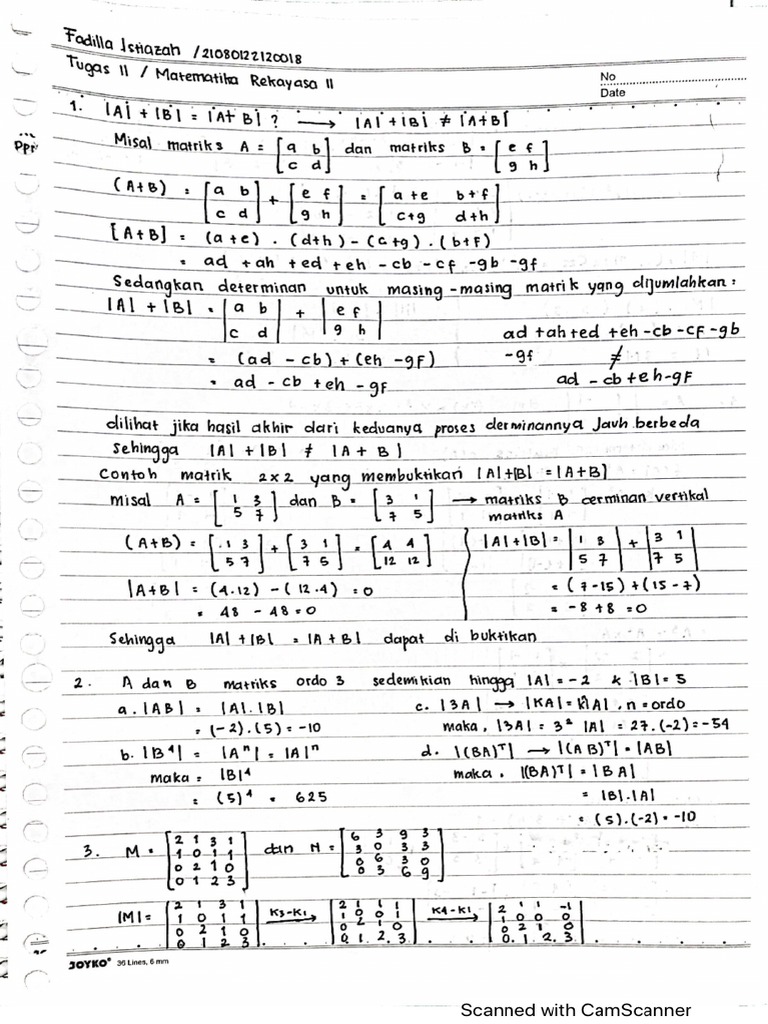 Fadilla Istiazah / 21080122120018
Tugas 11 / Matematika Rekayasa II
No
Date
1. |A| + |B| = |A+B| ? → |A|+|B| ≠ |A+B|
Misal matriks A = [a b; c d] dan matriks B = [e f; g h]
(A+B) = [a b; c d] + [e f; g h] = [a+e b+f; c+g d+h]
[A+B] = (a+e) . (d+h) - (c+g) . (b+f)
= ad + ah + ed + eh - cb - cf - gb - gf
Sedangkan determinan untuk masing-masing matrik yang dijumlahkan :
|A| + |B| = |a b; c d| + |e f; g h|
= (ad - cb) + (eh - gf)
= ad - cb + eh - gf
ad + ah + ed + eh - cb - cf - gb
- gf ≠
ad - cb + eh - gf
dilihat jika hasil akhir dari keduanya proses derminannya Jauh berbeda
Sehingga |A| + |B| ≠ |A + B|
Contoh matrik 2x2 yang membuktikan |A|+|B| = |A+B|
misal A = [1 3; 5 7] dan B = [3 1; 7 5] → matriks B cerminan vertikal
matriks A
(A+B) = [1 3; 5 7] + [3 1; 7 5] = [4 4; 12 12]
|A+B| = (4.12) - (12.4) = 0
= 48 - 48 = 0
|A|+|B| = |1 3; 5 7| + |3 1; 7 5|
= (7-15) + (15-7)
= -8 + 8 = 0
Sehingga |A| + |B| = |A + B| dapat di buktikan
2. A dan B matriks ordo 3 sedemikian hingga |A| = -2 & |B| = 5
a. |AB| = |A|.|B|
= (-2).(5) = -10
b. |B⁴| = |Aⁿ| = |A|ⁿ
maka = |B|⁴
= (5)⁴ = 625
c. |3A| → |KA| = |A| , n = ordo
maka, |3A| = |A| = 27.(-2) = -54
d. |(BA)ᵀ| → |(AB)ᵀ| = |AB|
maka. |(BA)ᵀ| = |BA|
= |B|.|A|
= (5).(-2) = -10
3. M = [2 1 3 1; 1 0 1 1; 0 2 1 0; 0 1 2 3] dan N = [6 3 9 3; 3 0 3 3; 0 6 3 0; 0 3 6 9]
|M| = |2 1 3 1; 1 0 1 1; 0 2 1 0; 0 1 2 3| K3-K1 → |2 1 1 1; 1 0 0 1; 0 2 1 0; 0 1 2 3| K4-K1 → |2 1 1 -1; 1 0 0 0; 0 2 1 0; 0 1 2 3|
JOYKO® 36 Lines, 6 mm
Scanned with CamScanner